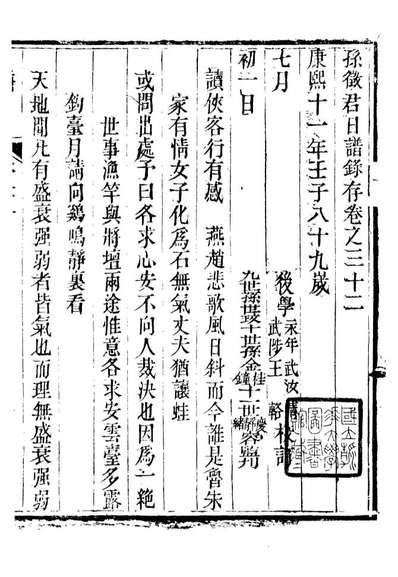 孫徵君日譜錄存卷之三十二
康熙十一年壬子八十九歲
後學
永年武汝
武陟王
校訂
七月
初一日
讀俠客行有感　燕趙悲歌風日斜而今誰是魯朱
家有情女子化為石無氣丈夫猶讓蛙
或問出處予曰各求心安不向人裁決也因為一絕
世事漁竿與將壇兩途惟意各求安雲臺多露
釣臺月請向鷄鳴靜裏看
天地間凡有盛衰强弱者皆氣也而理無盛衰强弱